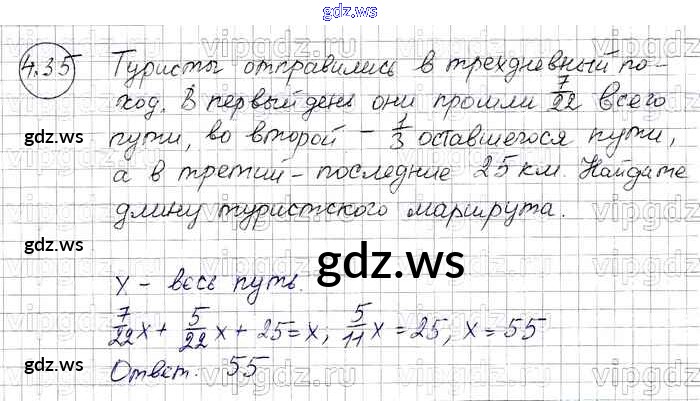 gdz.ws
4.35 Туристы отправились в трехдневный по-
ход. В первый день они прошли 7/22 всего
пути, во второй - 1/3 оставшегося пути,
а в третий - последние 25 км. Найдите
длину туристского маршрута.
x - весь путь.
7/22 x + 5/22 x + 25 = x; 5/11 x = 25, x = 55
Ответ: 55
gdz.ws
gdz.ws
gdz.ws
gdz.ws
gdz.ws
gdz.ws
gdz.ws
gdz.ws